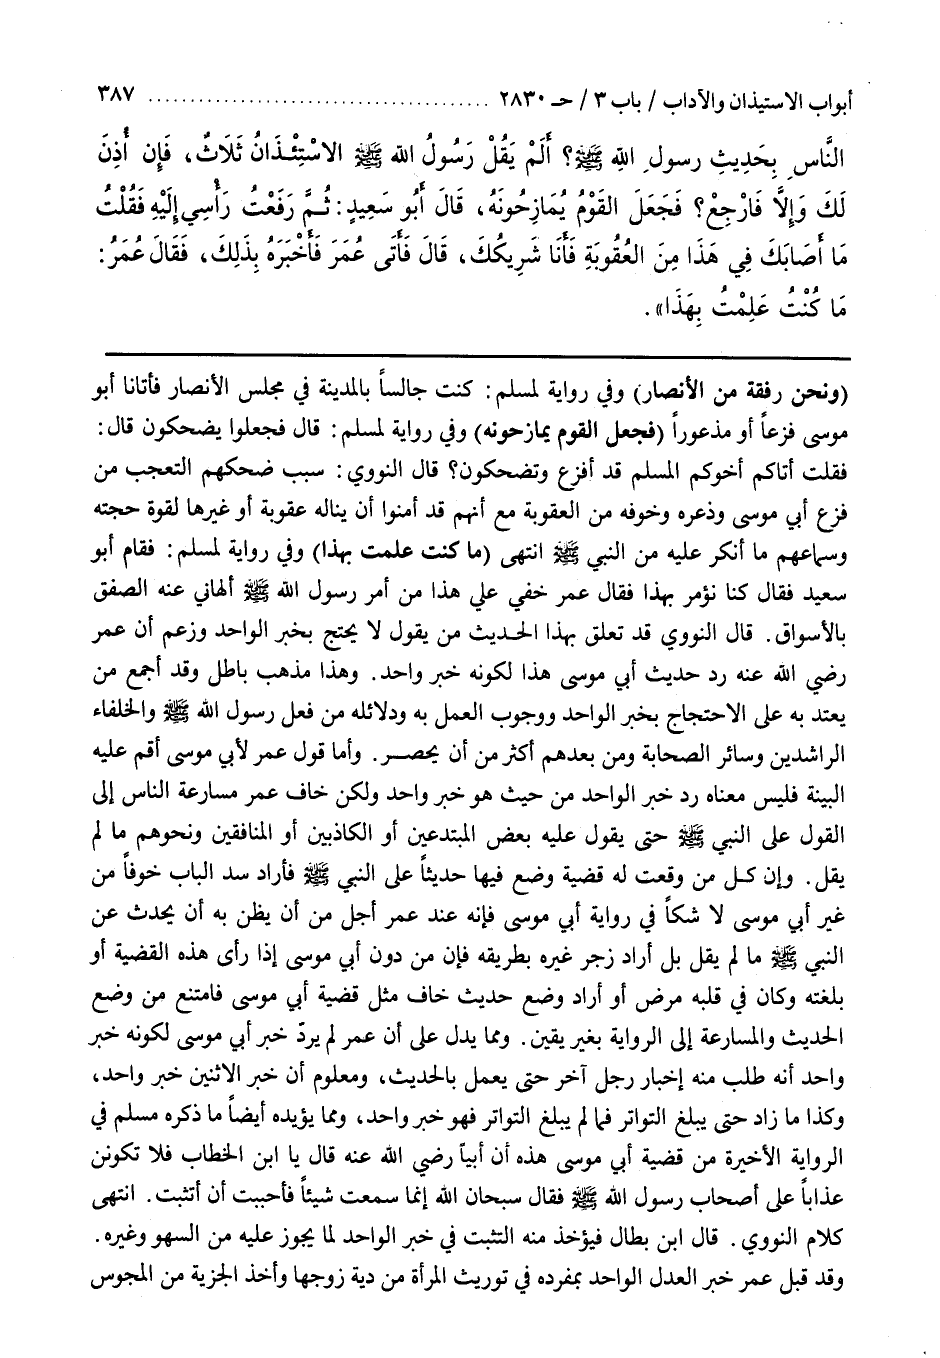 أبواب الاستيذان والآداب / باب ٣ / حـ ٢٨٣٠ ........................................ ٣٨٧
النَّاسِ بِحَدِيثِ رسولِ اللهِ ﷺ؟ أَلَمْ يَقُلْ رَسُولُ الله ﷺ الاسْتِئْذَانُ ثَلَاثٌ، فَإِن أُذِنَ
لَكَ وَإِلَّا فَارْجِعْ؟ فَجَعَلَ القَوْمُ يُمَازِحُونَهُ، قَالَ أَبُو سَعِيدٍ: ثُمَّ رَفَعْتُ رَأْسِي إِلَيْهِ فَقُلْتُ
مَا أَصَابَكَ فِي هَذَا مِنَ العُقُوبَةِ فَأَنَا شَرِيكُكَ، قَالَ فَأَتَى عُمَرَ فَأَخْبَرَهُ بِذَلِكَ، فَقَالَ عُمَرُ:
مَا كُنْتُ عَلِمْتُ بِهَذَا».
(ونحن رفقة من الأنصار) وفي رواية لمسلم: كنت جالساً بالمدينة في مجلس الأنصار فأتانا أبو
موسى فزعاً أو مذعوراً (فجعل القوم يمازحونه) وفي رواية لمسلم: قال فجعلوا يضحكون قال:
فقلت أتاكم أخوكم المسلم قد أفزع وتضحكون؟ قال النووي: سبب ضحكهم التعجب من
فزع أبي موسى وذعره وخوفه من العقوبة مع أنهم قد أمنوا أن يناله عقوبة أو غيرها لقوة حجته
وسماعهم ما أنكر عليه من النبي ﷺ انتهى (ما كنت علمت بهذا) وفي رواية لمسلم: فقام أبو
سعيد فقال كنا نؤمر بهذا فقال عمر خفي علي هذا من أمر رسول الله ﷺ ألهاني عنه الصفق
بالأسواق. قال النووي قد تعلق بهذا الحديث من يقول لا يحتج بخبر الواحد وزعم أن عمر
رضي الله عنه رد حديث أبي موسى هذا لكونه خبر واحد. وهذا مذهب باطل وقد أجمع من
يعتد به على الاحتجاج بخبر الواحد ووجوب العمل به ودلائله من فعل رسول الله ﷺ والخلفاء
الراشدين وسائر الصحابة ومن بعدهم أكثر من أن يحصر. وأما قول عمر لأبي موسى أقم عليه
البينة فليس معناه رد خبر الواحد من حيث هو خبر واحد ولكن خاف عمر مسارعة الناس إلى
القول على النبي ﷺ حتى يقول عليه بعض المبتدعين أو الكاذبين أو المنافقين ونحوهم ما لم
يقل. وإن كل من وقعت له قضية وضع فيها حديثاً على النبي ﷺ فأراد سد الباب خوفاً من
غير أبي موسى لا شكاً في رواية أبي موسى فإنه عند عمر أجل من أن يظن به أن يحدث عن
النبي ﷺ ما لم يقل بل أراد زجر غيره بطريقه فإن من دون أبي موسى إذا رأى هذه القضية أو
بلغته وكان في قلبه مرض أو أراد وضع حديث خاف مثل قضية أبي موسى فامتنع من وضع
الحديث والمسارعة إلى الرواية بغير يقين. ومما يدل على أن عمر لم يردّ خبر أبي موسى لكونه خبر
واحد أنه طلب منه إخبار رجل آخر حتى يعمل بالحديث، ومعلوم أن خبر الاثنين خبر واحد،
وكذا ما زاد حتى يبلغ التواتر فما لم يبلغ التواتر فهو خبر واحد، ومما يؤيده أيضاً ما ذكره مسلم في
الرواية الأخيرة من قضية أبي موسى هذه أن أبياً رضي الله عنه قال يا ابن الخطاب فلا تكونن
عذاباً على أصحاب رسول الله ﷺ فقال سبحان الله إنما سمعت شيئاً فأحببت أن أتثبت. انتهى
كلام النووي. قال ابن بطال فيؤخذ منه التثبت في خبر الواحد لما يجوز عليه من السهو وغيره.
وقد قبل عمر خبر العدل الواحد بمفرده في توريث المرأة من دية زوجها وأخذ الجزية من المجوس